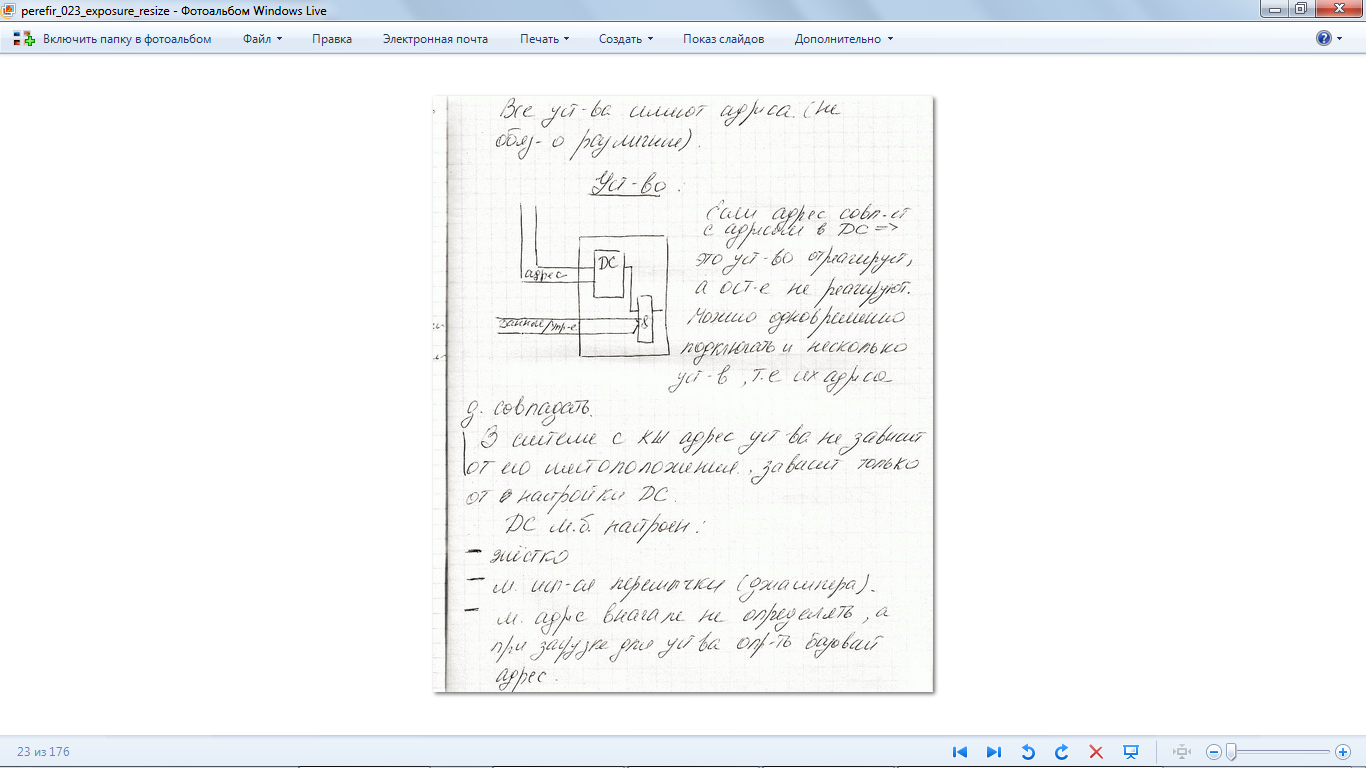 perefir_023_exposure_resize - Фотоальбом Windows Live
Включить папку в фотоальбом Файл Правка Электронная почта Печать Создать Показ слайдов Дополнительно
Все уст-ва имеют адреса. (не
обяз-о различные).
Уст-во :
Если адрес совп-ет
с адресом в DC =>
это уст-во отреагирует,
а ост-е не реагируют.
Можно одновременно
подключать и несколько
уст-в, т.е их адреса
адрес
DC
данные/упр-е
&
д. совпадать.
В системе с КШ адрес уст-ва не зависит
от его местоположения. зависит только
от настройки DC.
DC м.б. настроен:
- жёстко
- м. исп-ся перемычки (джампера).
- м. адрес вначале не определять, а
при загрузке для уст ва опр-ть базовый
адрес.
23 из 176